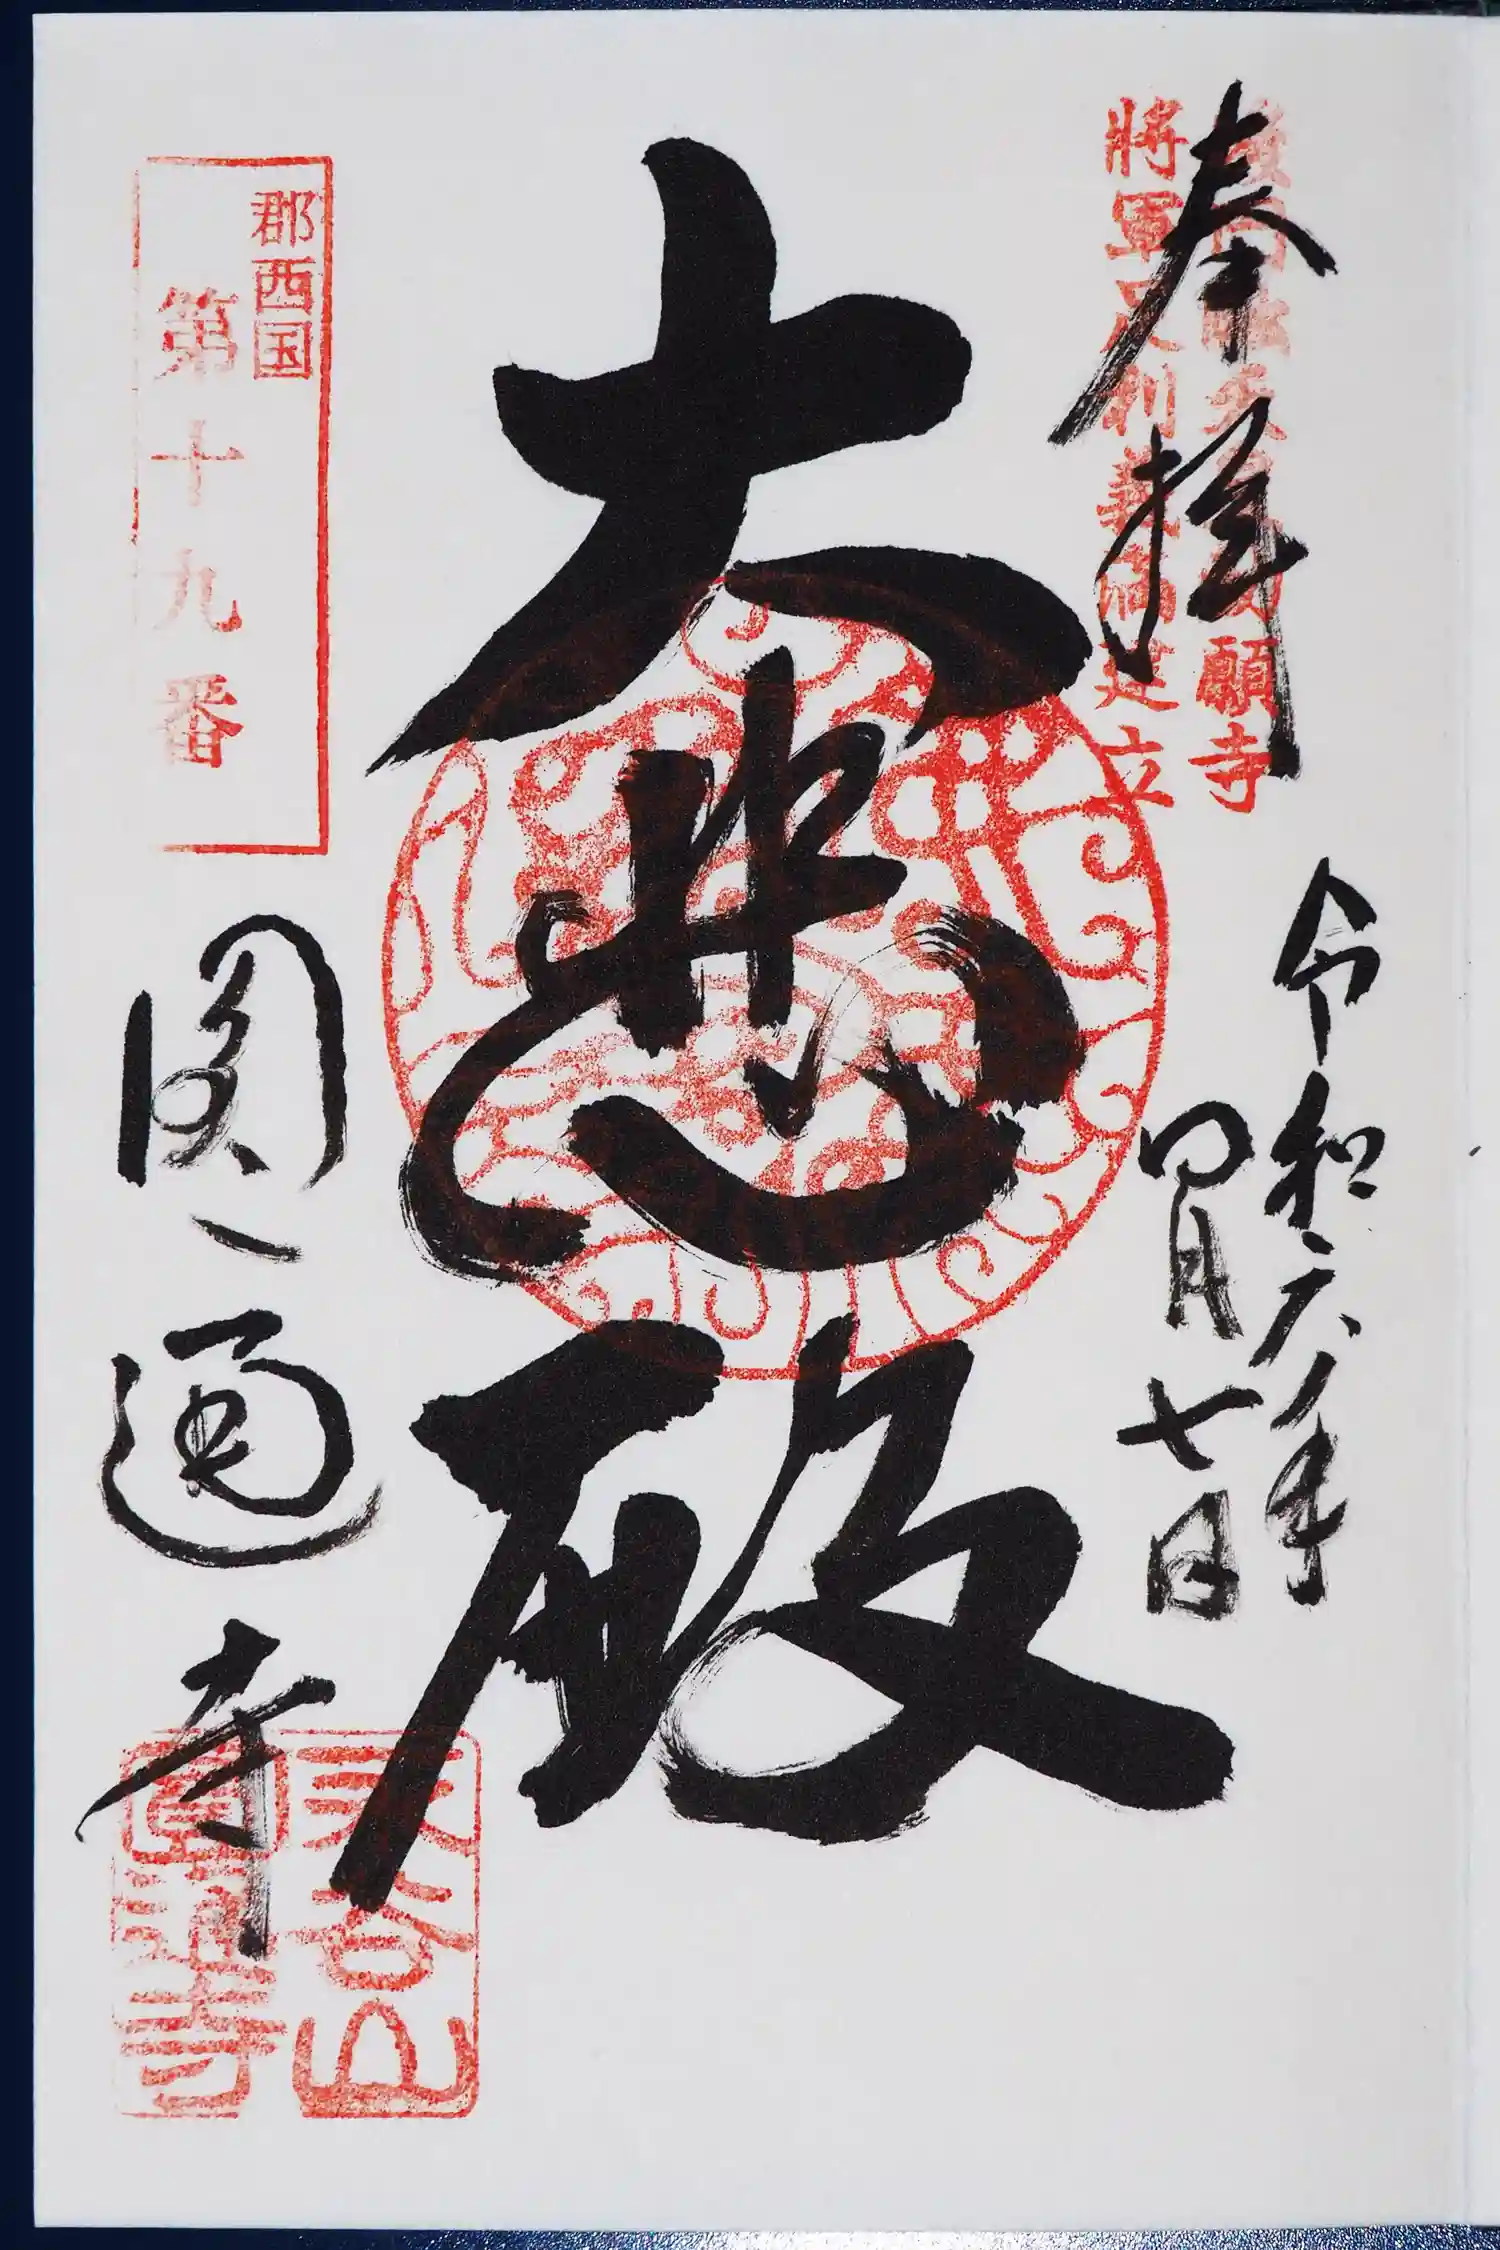 奉拝
願寺
將軍足利義満建立
令和六年
四月七日
大悲殿
郡西国
第十九番
圓通寺
谷山
圓通寺